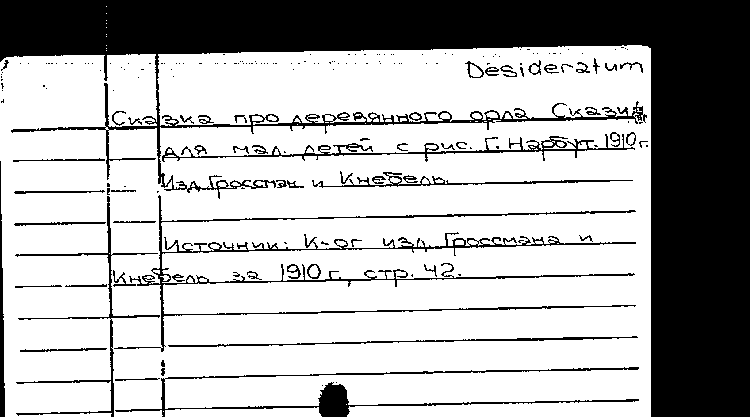 Desideratum
Сказка про деревянного орла. Сказки
для мал. детей с рис. Г. Нарбут. 1910 г.
Изд. Гроссман и Кнебель.
Источник: К-ог изд. Гроссмана и
Кнебель за 1910 г., стр. 42.